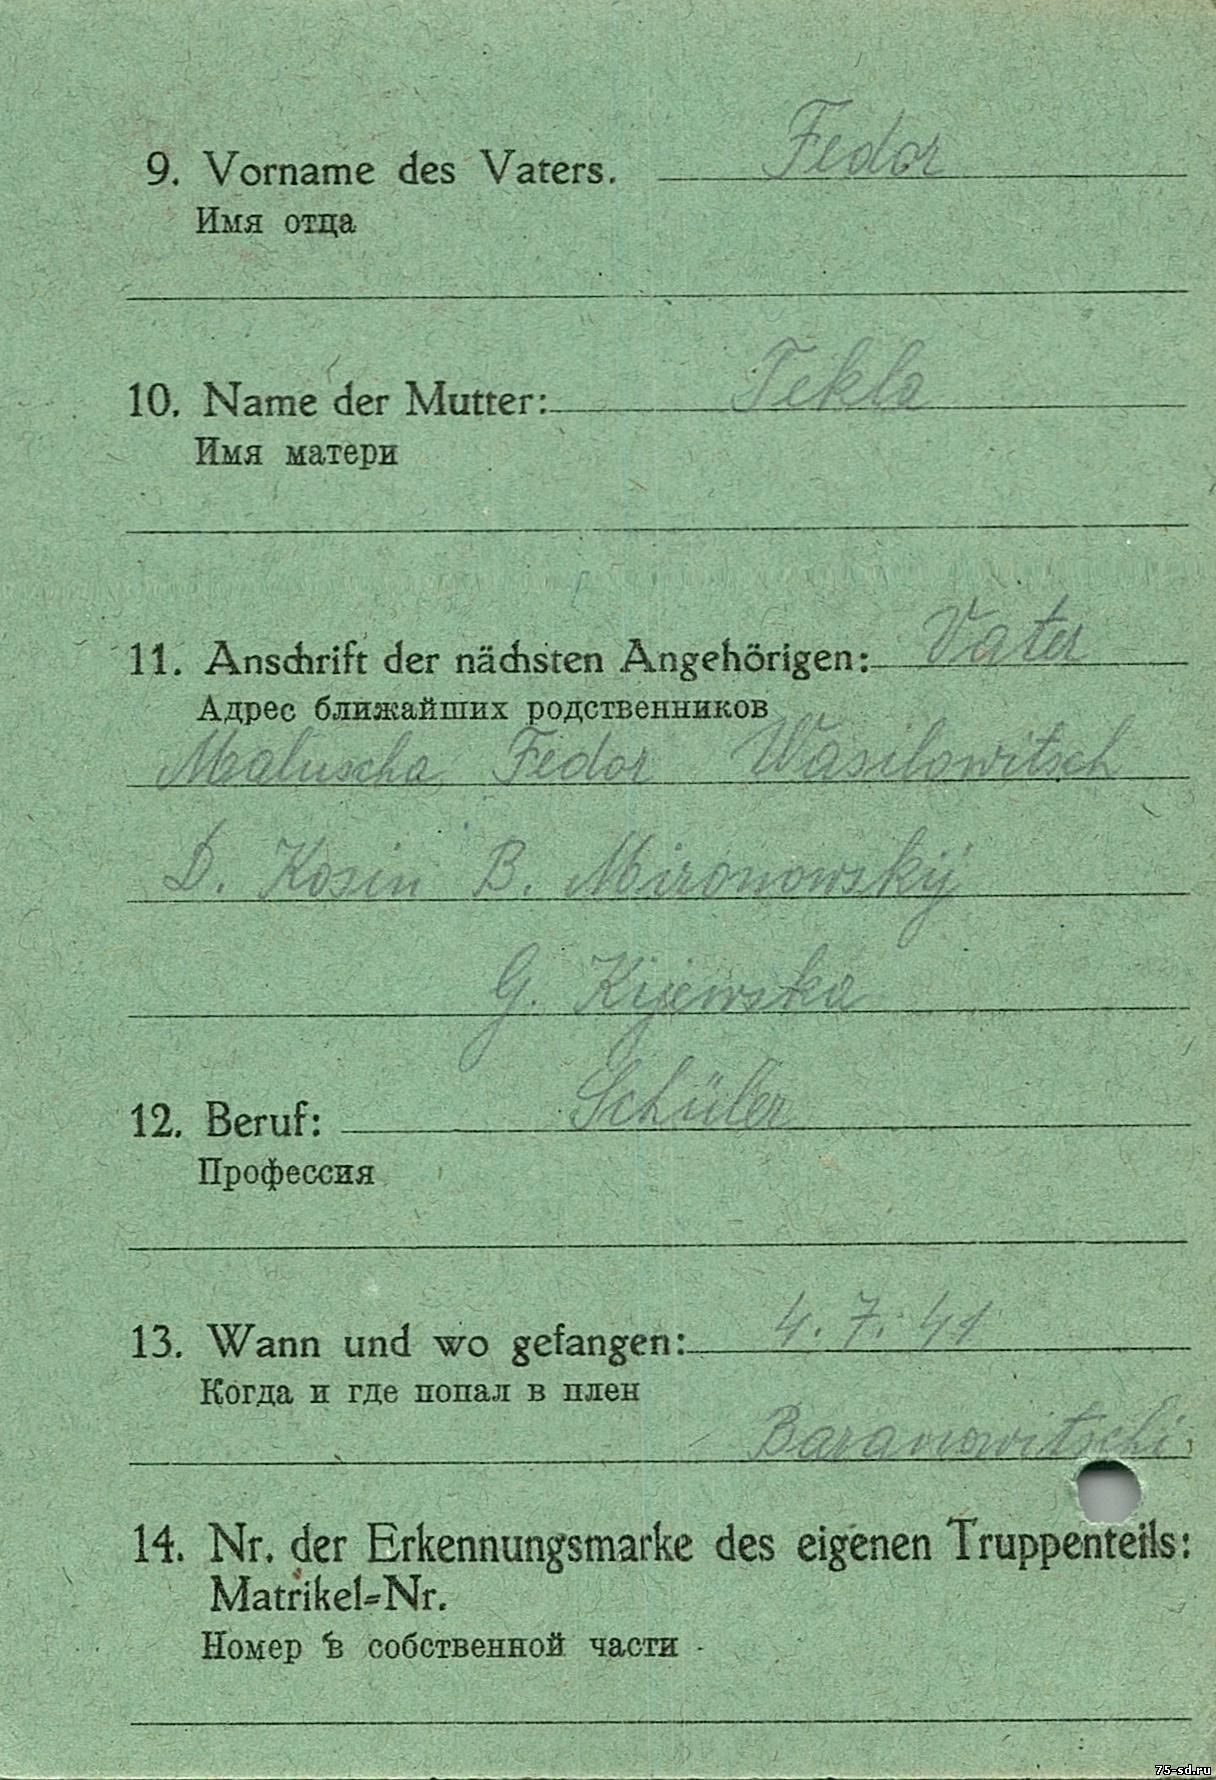 9. Vorname des Vaters. Fedor
Имя отца
10. Name der Mutter: Tekla
Имя матери
11. Anschrift der nächsten Angehörigen: Vater
Адрес ближайших родственников
Maluscha Fedor Wasilowitsch
D. Kosin B. Mironowskij
G. Kijewska
12. Beruf: Schüler
Профессия
13. Wann und wo gefangen: 4.7.41
Когда и где попал в плен
Baranowitschi
14. Nr. der Erkennungsmarke des eigenen Truppenteils:
Matrikel=Nr.
Номер в собственной части
75-sd.ru